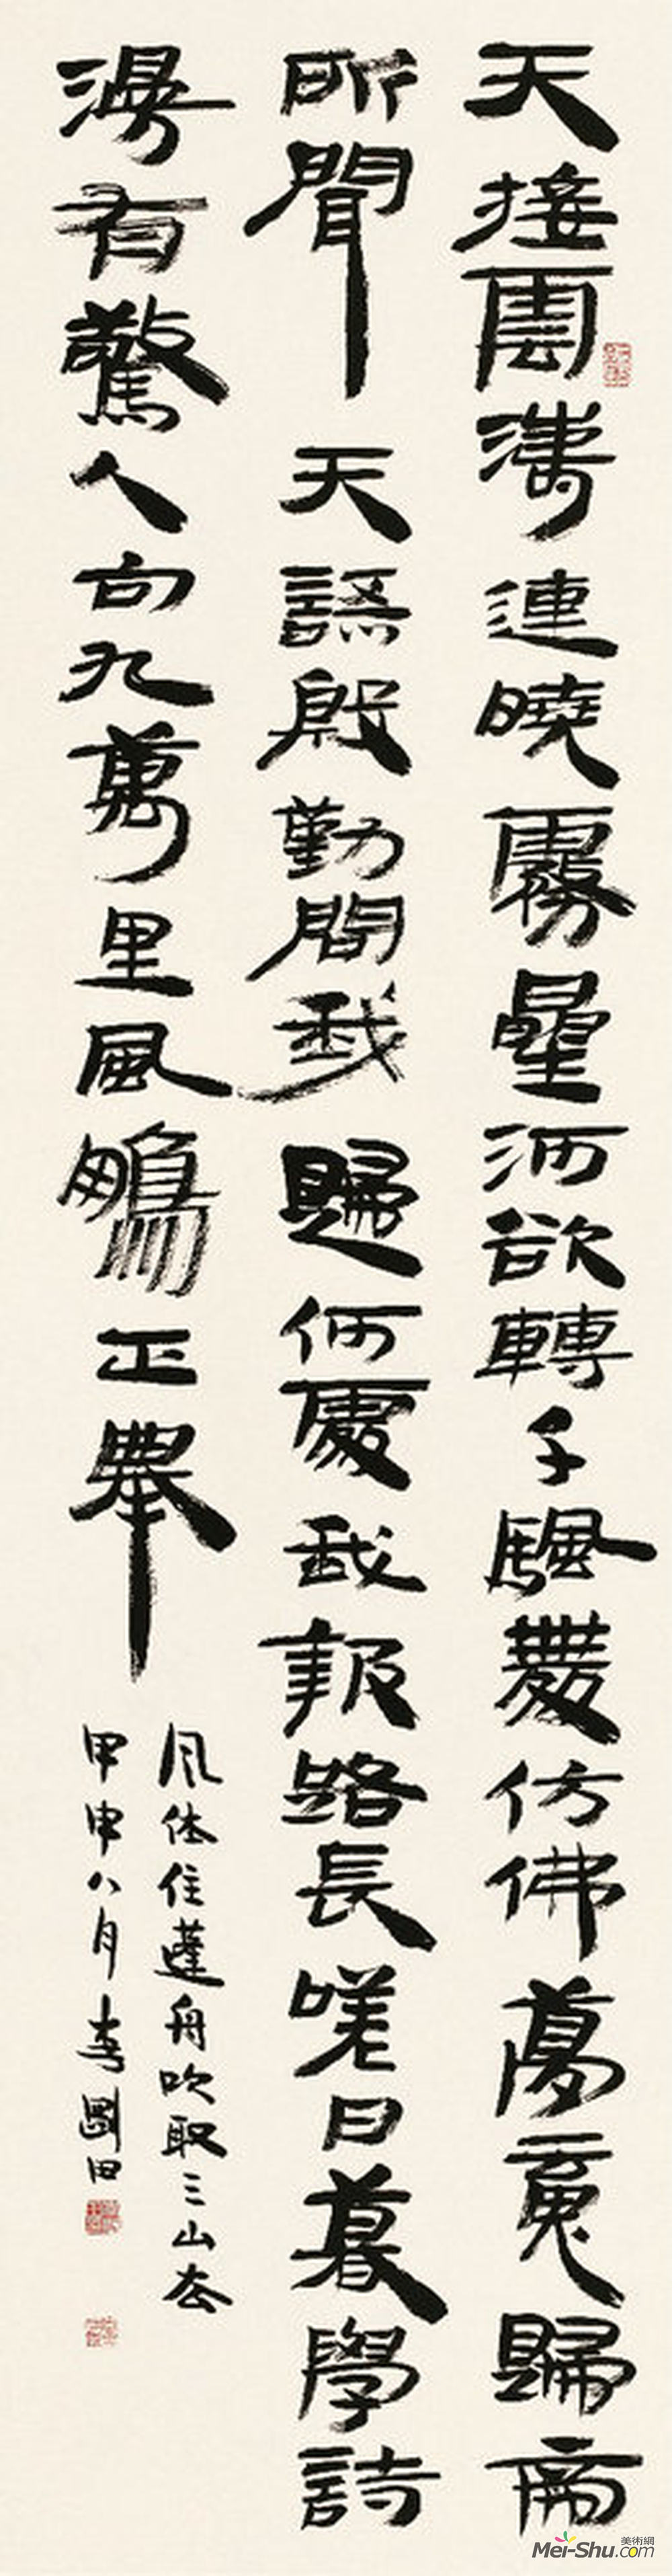 天接雲濤連曉霧星河欲轉千颿舞仿佛夢魂歸帝
所聞天語殷勤問我歸何處我報路長嗟日暮學詩
漫有驚人句九萬里風鵬正舉
风休住蓬舟吹取三山去
甲申八月李剛田
美術網
Mei-Shu.com